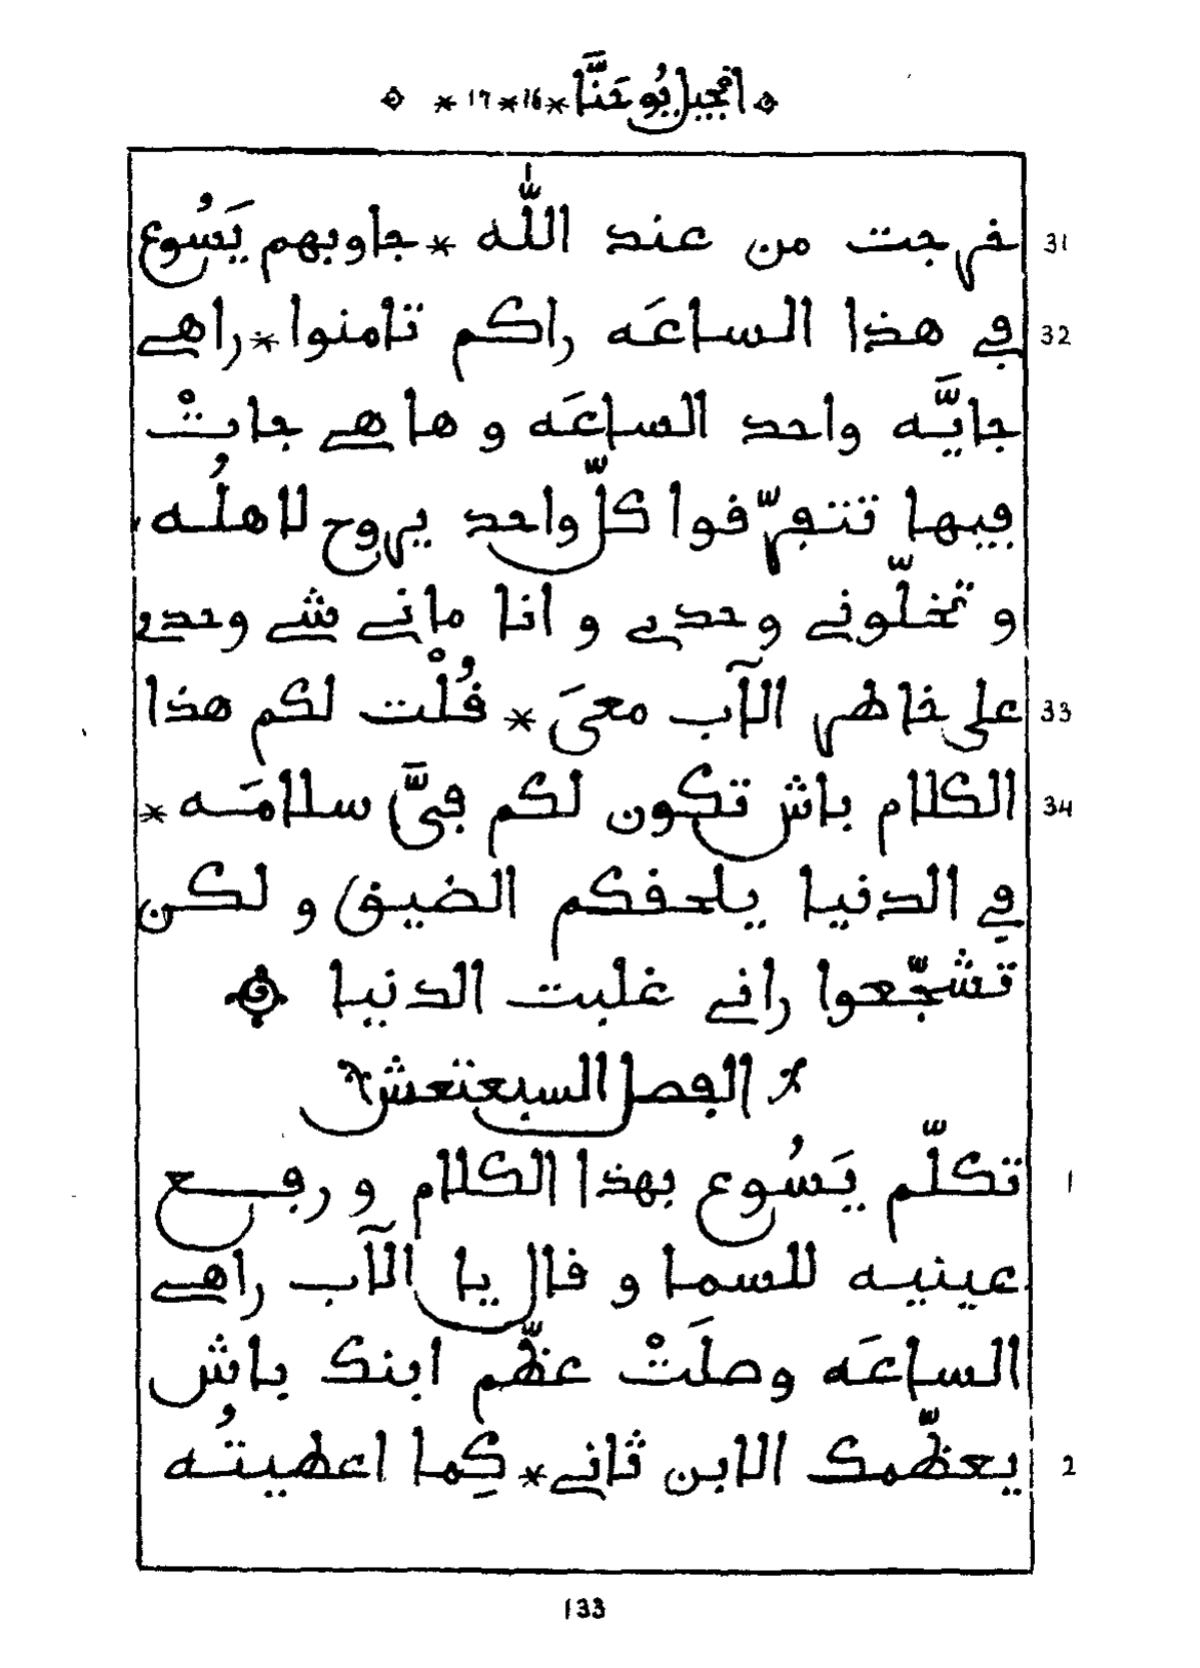 انجيل يُوحَنَّا * 16 * 17 *
خرجت من عند اللّٰه * جاوبهم يَسُوع 31
في هذا الساعَه راكم تامنوا * راهي 32
جايَّه واحد الساعَه و ها هي جاتْ
فيها تتفرّقوا كلّ واحد يروح لاهلُه
و تخلّوني وحدي و انا ماني شي وحدي
على خاطر الآب معىَ * قُلْت لكم هذا 33
الكلام باش تكون لكم فىَّ سلامَه * 34
في الدنيا يلحقكم الضيق و لكن
تشجّعوا راني غلبت الدنيا
الفصل السبعتعش
تكلّم يَسُوع بهذا الكلام و رفع 1
عينيه للسما و قال يا الآب راهي
الساعَه وصلَتْ عظّم ابنك باش
يعظّمك الابن ثاني * كِما اعطيتُه 2
133